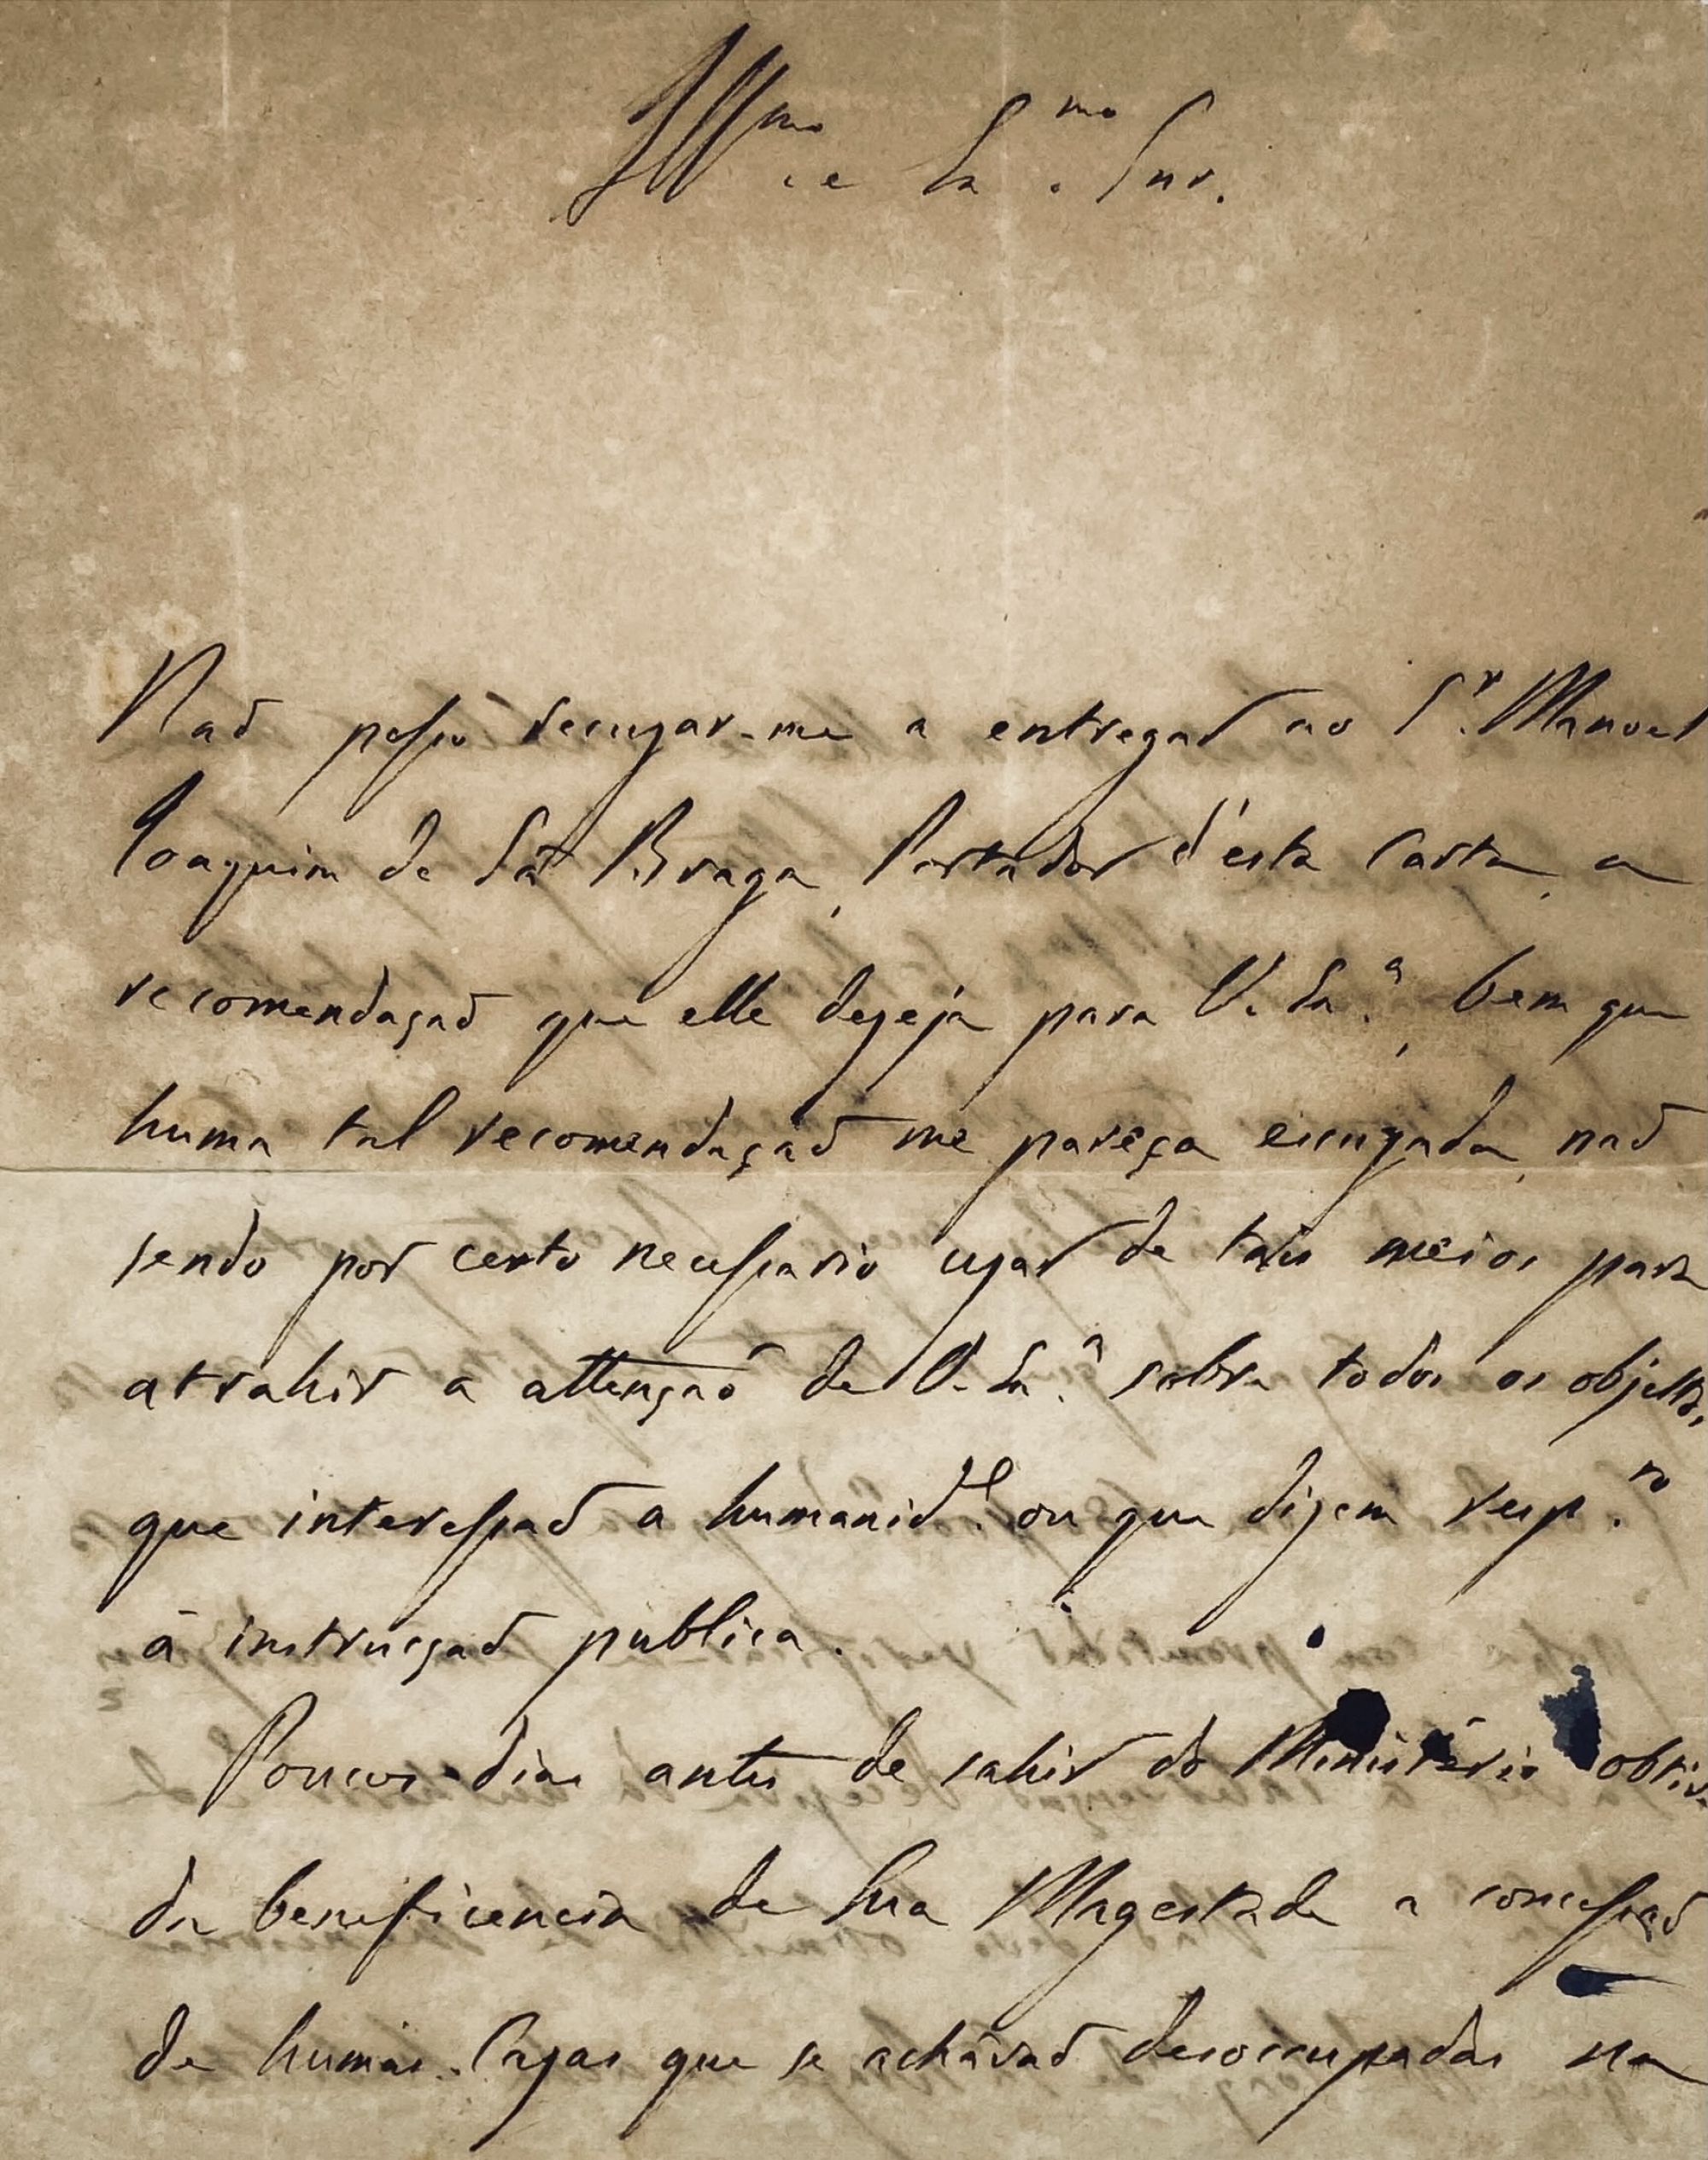 Ill.mo e Ex.mo Snr.
Naõ posso recuzar-me a entregar ao S.r Manoel
Joaquim de Sá Braga, Portador d'esta Carta, a
recomendaçaõ que elle dezeja para V. Ex.a, bem que
huma tal recomendaçaõ me pareça escuzada, naõ
sendo por certo necessario uzar de tais meios para
atrahir a attençaõ de V. Ex.a sobre todos os objectos,
que interessaõ a humanid.e ou que dizem resp.to
á instrucçaõ publica.
Poucos dias antes de sahir do Ministério obtive
da beneficencia de Sua Magestade a concessaõ
de humas Cazas que se achávaõ desoccupadas na